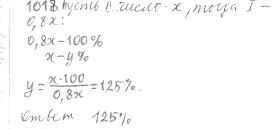 1018. Пусть II число - x, тогда I -
0,8x:
0,8x - 100%
x - y%
y = x·100 / 0,8x = 125%.
Ответ 125%